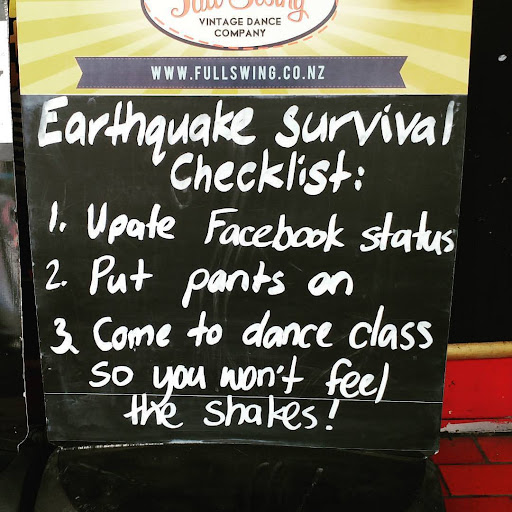 Full Swing
VINTAGE DANCE
COMPANY
WWW.FULLSWING.CO.NZ
Earthquake survival
Checklist:
1. Upate Facebook status
2. Put pants on
3. Come to dance class
so you won't feel
the shakes!